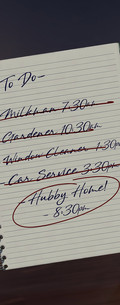 To Do-
Milkman 7:30pm
Gardener 10.30pm
Window Cleaner 1-30pm
Car Service 3:30pm
Hubby Home!
- 8:30pm